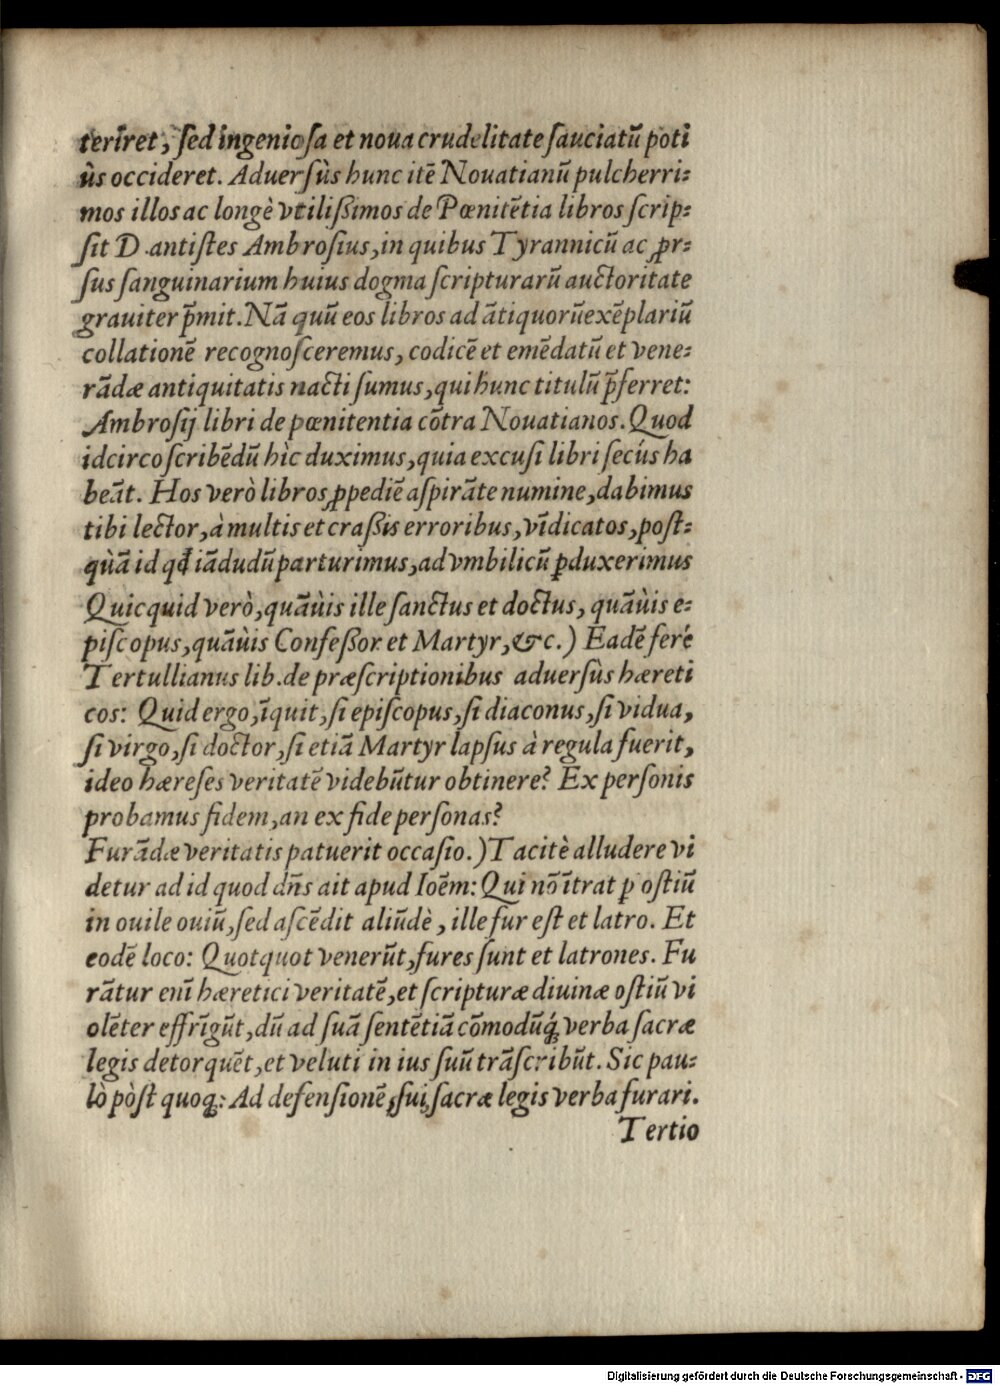 terīret, ſed ingenioſa et noua crudelitate ſauciatū poti
ùs occideret. Aduerſùs hunc itē Nouatianū pulcherri:
mos illos ac longè vtilißimos de Pœnitētia libros ſcrip:
ſit D. antiſtes Ambroſius, in quibus Tyrannicū ac ꝓr:
ſus ſanguinarium huius dogma ſcripturarū auctoritate
grauiter p̄mit. Nā quū eos libros ad ātiquorū exēplariū
collationē recognoſceremus, codicē et emēdatū et vene:
rādæ antiquitatis nacti ſumus, qui hunc titulū p̄ferret:
Ambroſij libri de pœnitentia cōtra Nouatianos. Quod
idcirco ſcribēdū hìc duximus, quia excuſi libri ſecús ha
beāt. Hos verò libros ꝓpediē aſpirāte numine, dabimus
tibi lector, à multis et craßis erroribus, vīdicatos, poſt:
quàā id qď iādudū parturimus, ad vmbilicū ꝑduxerimus
Quicquid verò, quāùis ille ſanctus et doctus, quāùis e:
piſcopus, quāùis Confeßor et Martyr, &c.) Eadē feré
Tertullianus lib. de præſcriptionibus aduerſùs hæreti
cos: Quid ergo, īquit, ſi epiſcopus, ſi diaconus, ſi vidua,
ſi virgo, ſi doctor, ſi etiā Martyr lapſus à regula fuerit,
ideo hæreſes veritatē videbūtur obtinere? Ex perſonis
probamus fidem, an ex fide perſonas?
Furādæ veritatis patuerit occaſio.) Tacitè alludere vi
detur ad id quod dn̄s ait apud Ioēm: Qui nō ītrat ꝑ oſtiū
in ouile ouiū, ſed aſcēdit aliūdè, ille fur eſt et latro. Et
eodē loco: Quotquot venerūt, fures ſunt et latrones. Fu
rātur enī hæretici veritatē, et ſcripturæ diuinæ oſtiū vi
olēter effrīgūt, dū ad ſuā ſentētiā cōmodūq́ꝫ verba ſacræ
legis detorquēt, et veluti in ius ſuū trāſcribūt. Sic pau:
lò pòſt quoqꝫ: Ad defenſionē, ſui, ſacræ legis verba furari.
Tertio
Digitalisierung gefördert durch die Deutsche Forschungsgemeinschaft - DFG